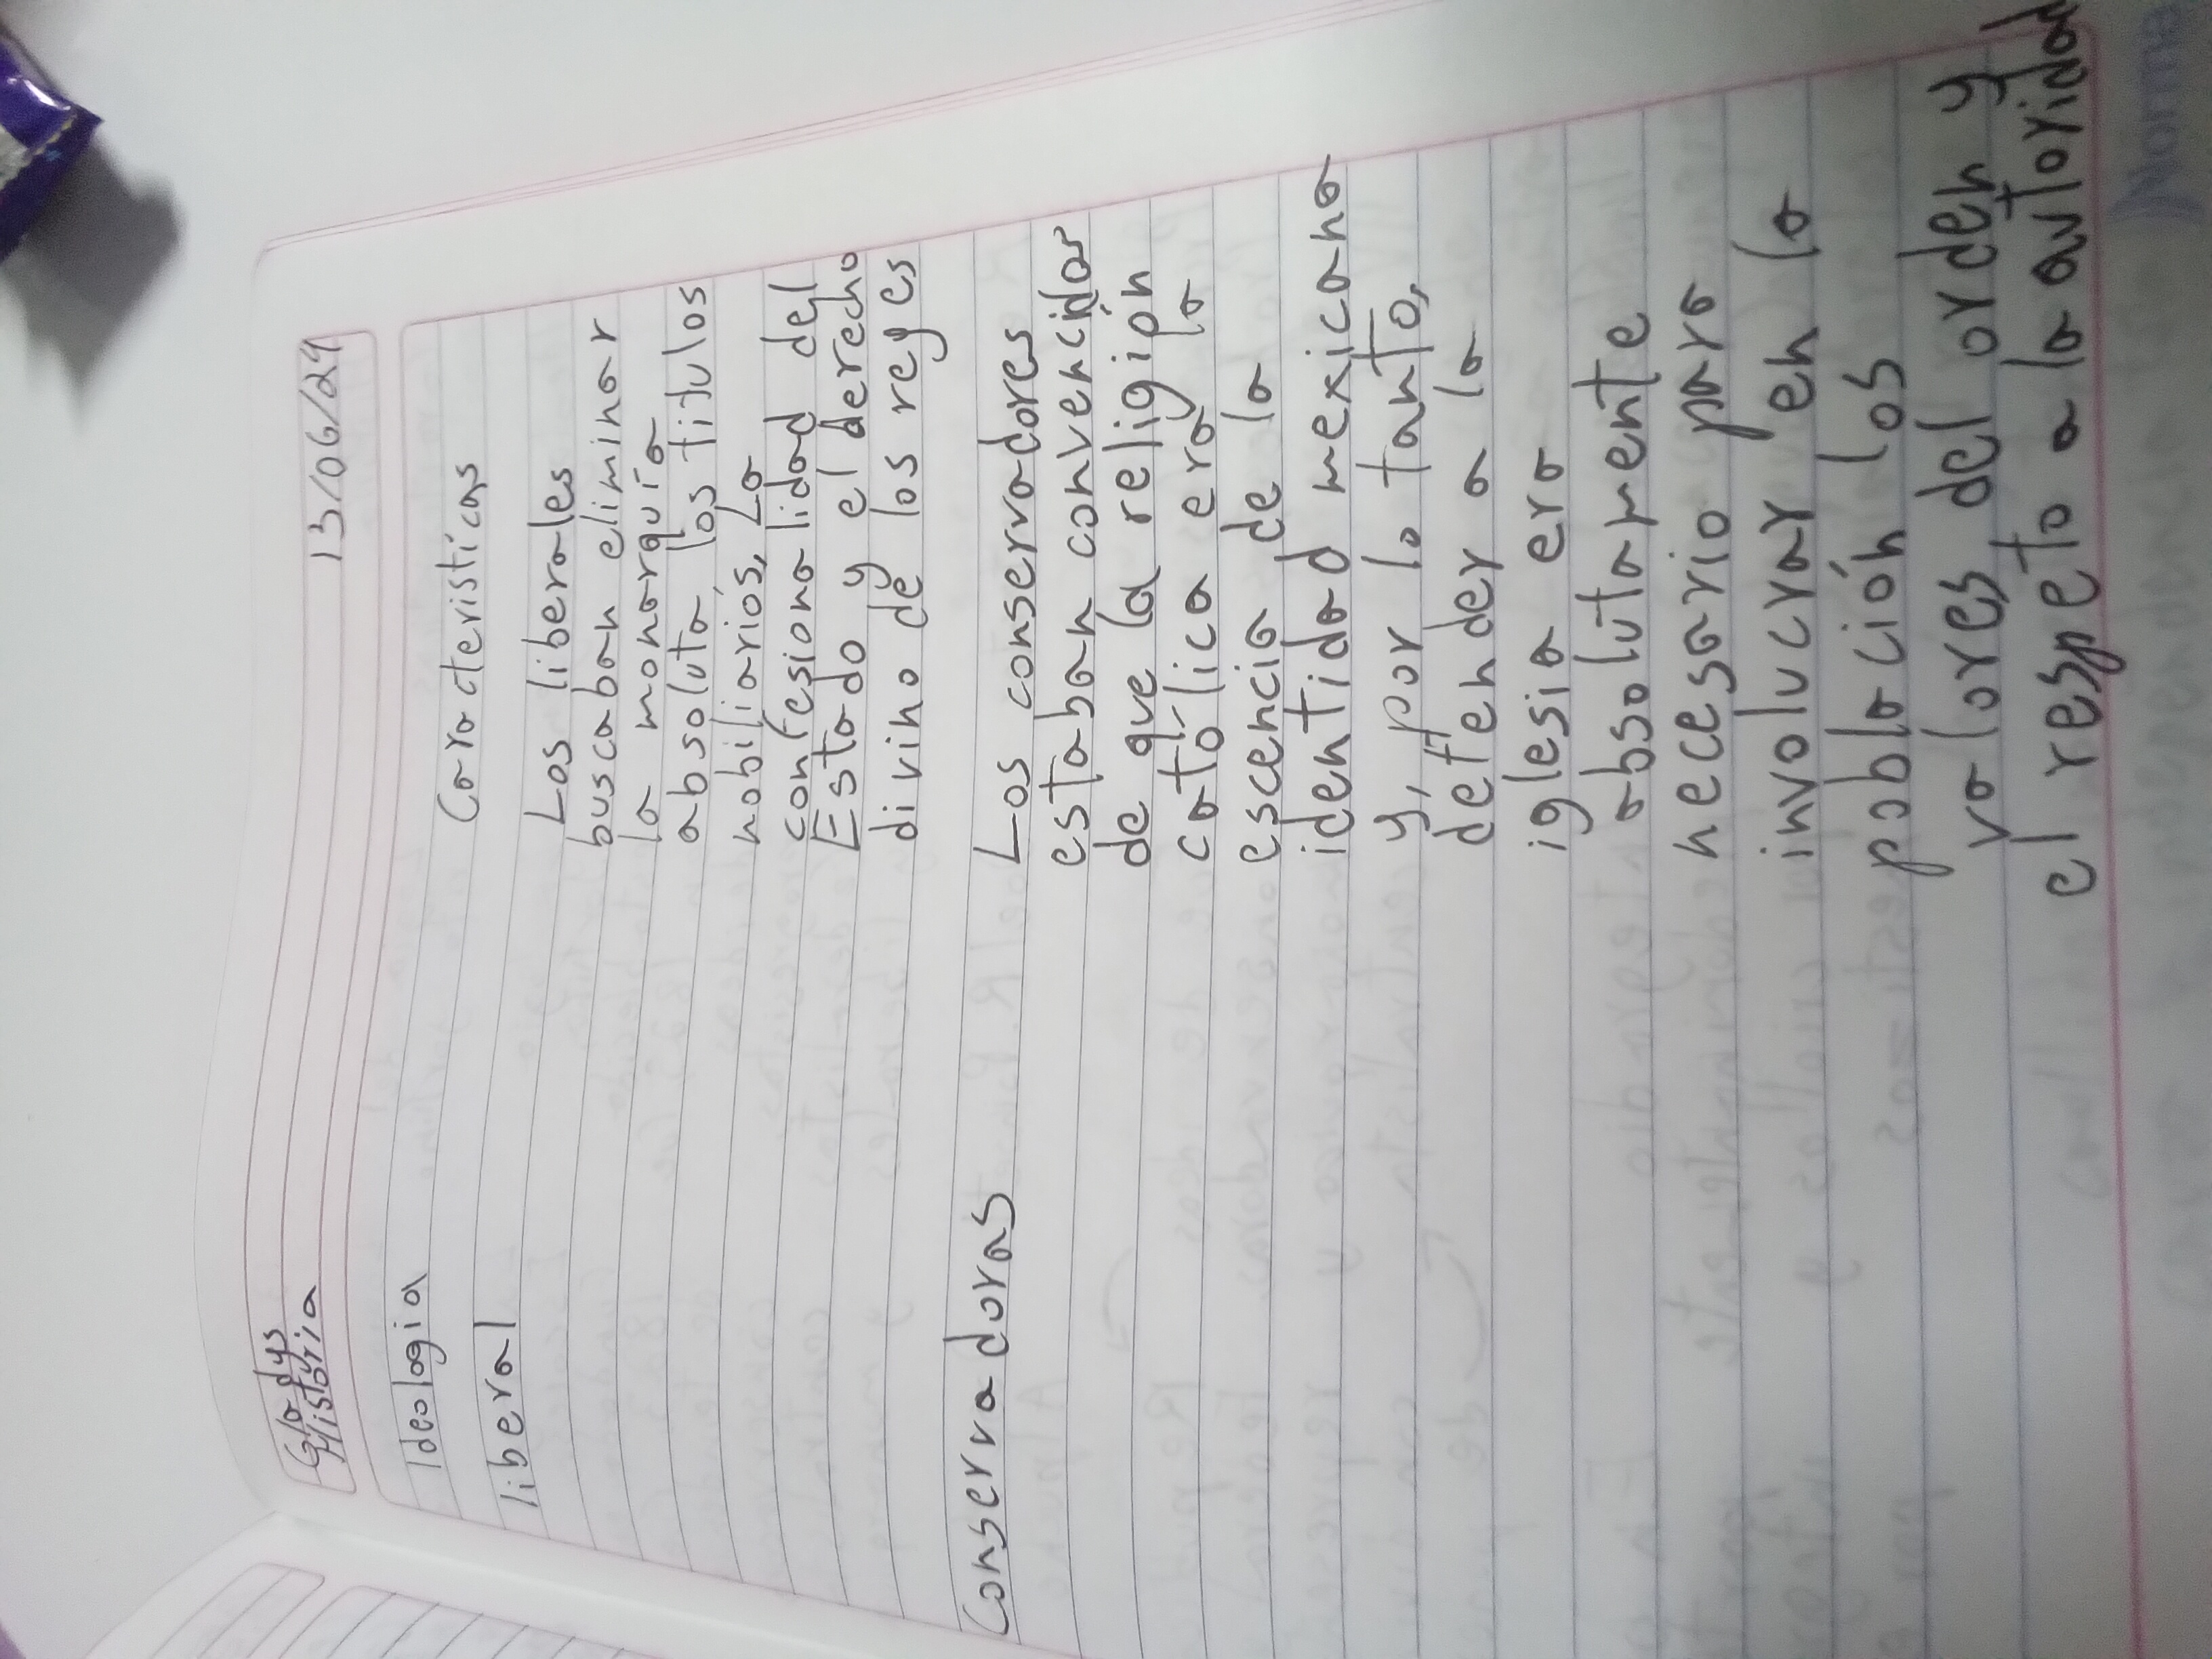 Gladys
Historia
13/06/24
Ideologia
Caracteristicas
liberal
Los liberales
buscaban eliminar
la monarquía
absoluta, los titulos
nobiliarios, La
confesionalidad del
Estado y el derecho
divino de los reyes
Conservadoras
Los conservadores
estaban convencidos
de que la religión
católica era la
escencia de la
identidad mexicana
y, por lo tanto,
defender a la
iglesia era
absolutamente
necesario para
involucrar en la
población los
valores del orden y
el respeto a la autoridad
Norma